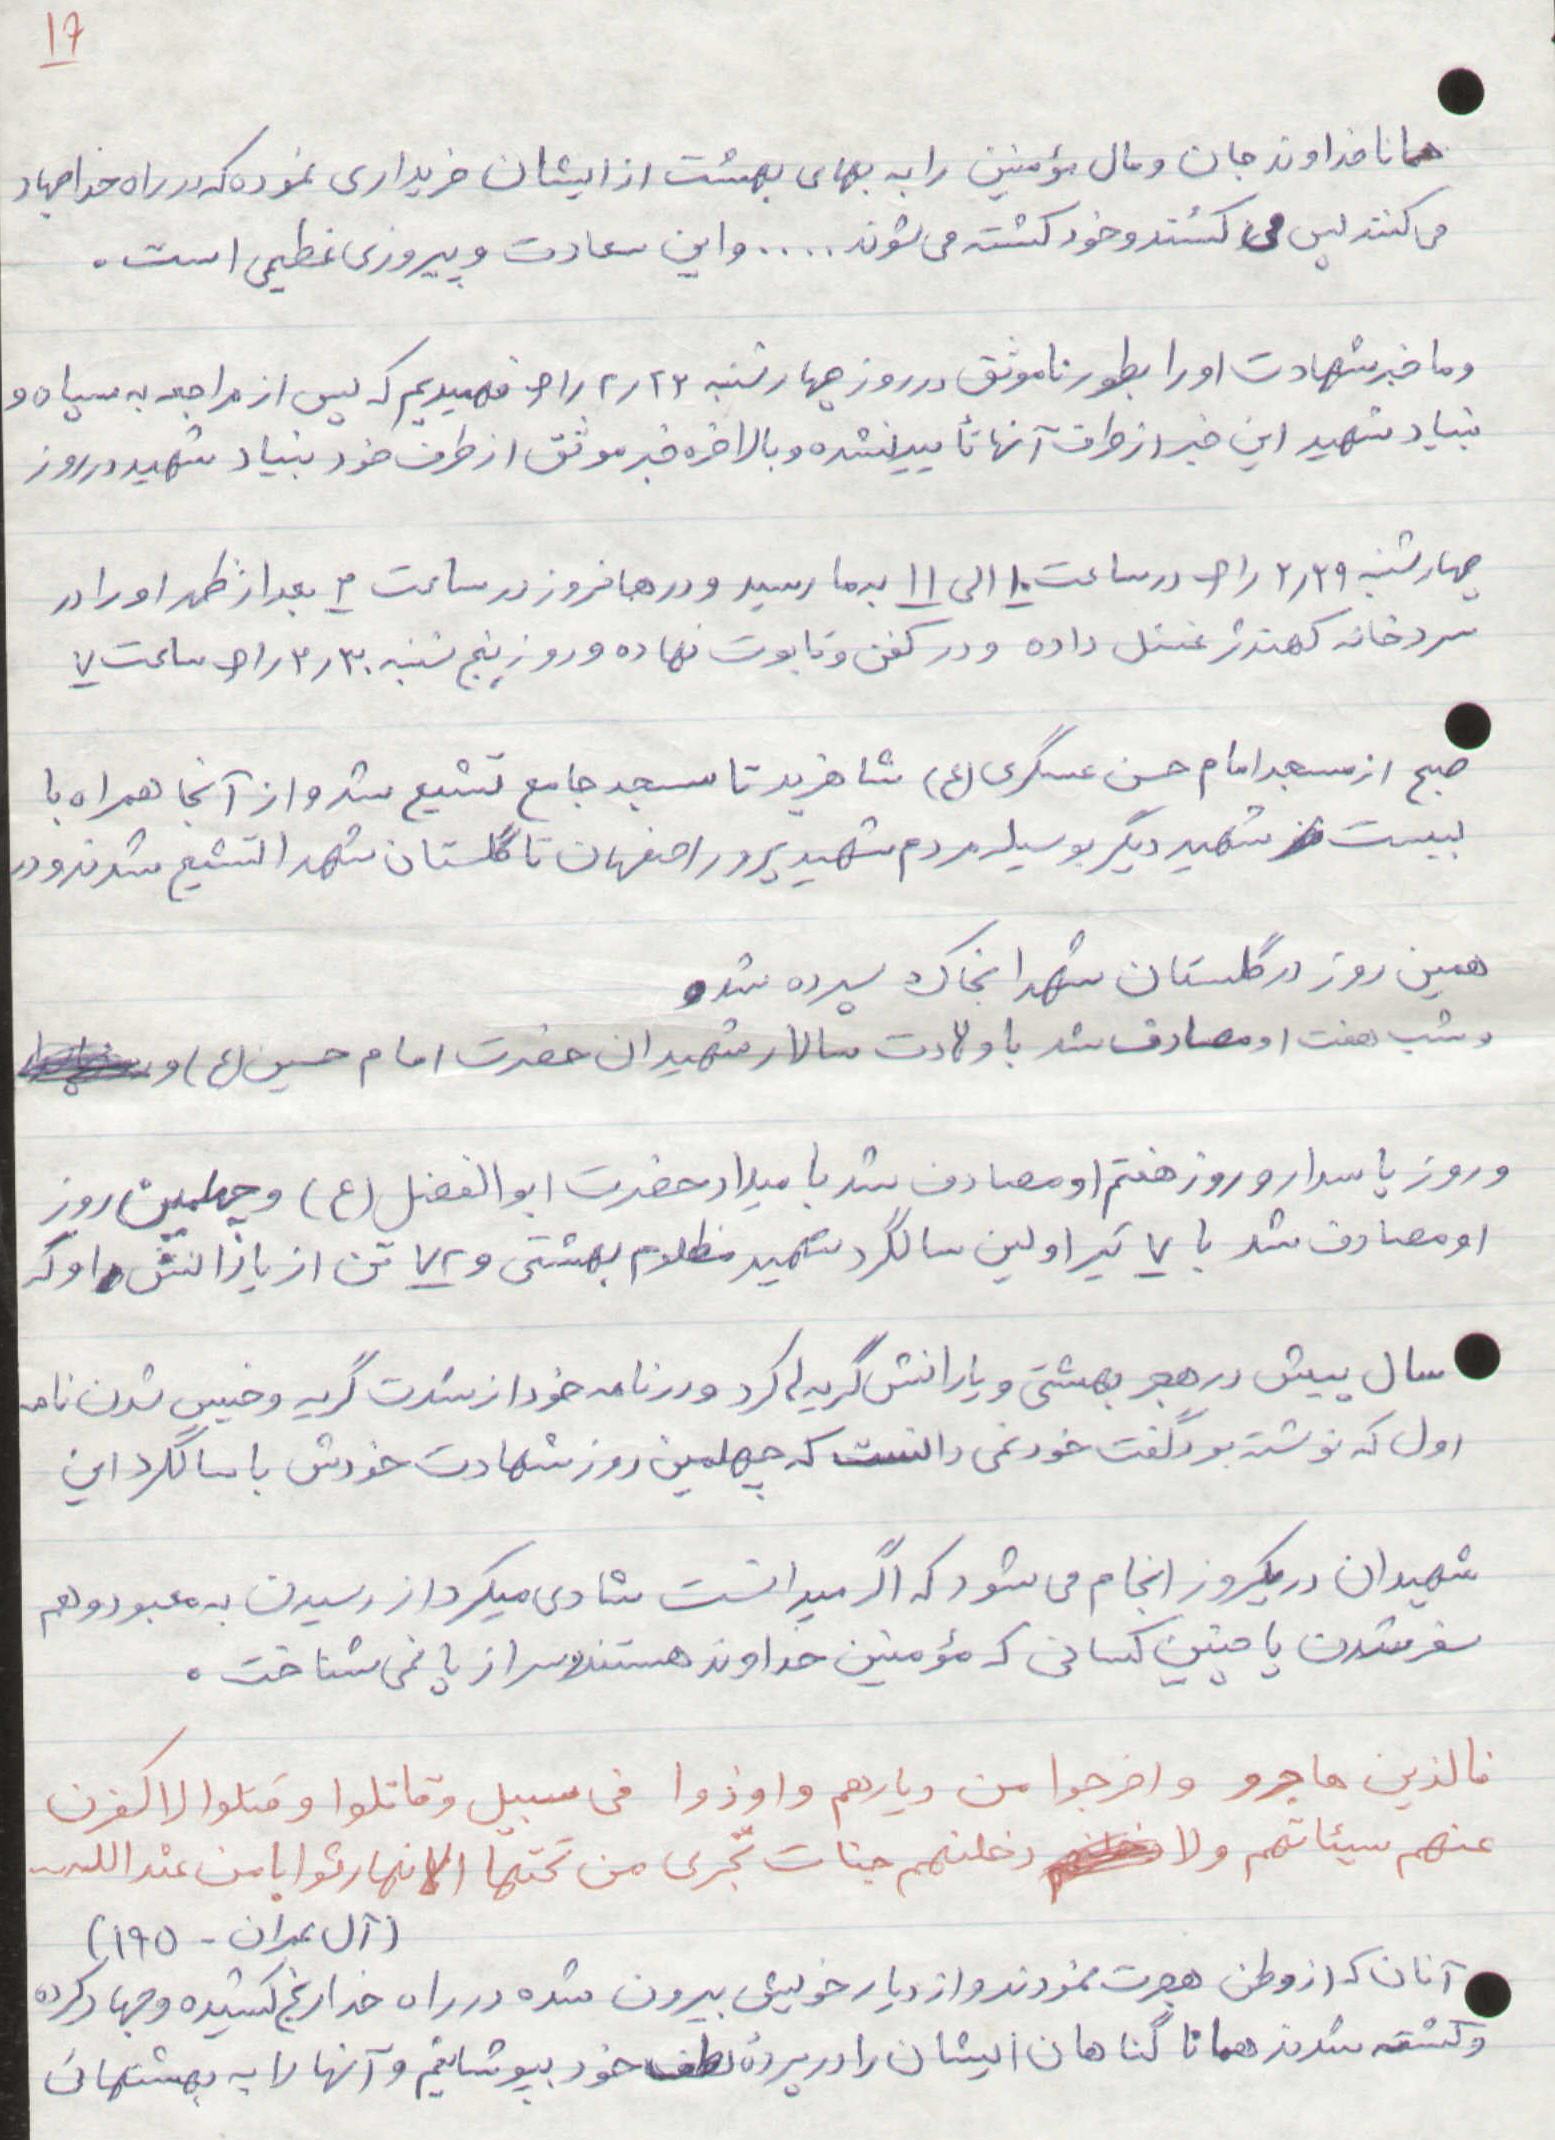 ۱۶
همانا خداوند جان و مال مؤمنین را به بهای بهشت از ایشان خریداری نموده که در راه خدا جهاد
می کنند پس می کشند و خود کشته می شوند ..... و این سعادت و پیروزی عظیمی است .
و ما خبر شهادت او را بطور ناموثق در روز چهارشنبه ۲۲ر۲ر۶۱ فهمیدیم که پس از مراجعه به سپاه و
بنیاد شهید این خبر از طرف آنها تأیید نشده و بالاخره خبر موثق از طرف خود بنیاد شهید در روز
چهارشنبه ۲ر۲۹ر۶۱ در ساعت ۱۰ الی ۱۱ به ما رسید و در همانروز در ساعت ۳ بعد از ظهر او را در
سردخانه کهندژ غسل داده و در کفن و تابوت نهاده و روز پنج شنبه ۳۰ر۲ر۶۱ ساعت ۷
صبح از مسجد امام حسن عسگری (ع) شاهزید تا مسجد جامع تشیع شد و از آنجا همراه با
بیست شهید دیگر بوسیله مردم شهید پرور اصفهان تا گلستان شهدا تشیع شدند و در
همین روز در گلستان شهدا بخاک سپرده شد
و شب هفت او مصادف شد با ولادت سالار شهیدان حضرت امام حسین (ع) و
و روز پاسدار و روز هفتم او مصادف شد با میلاد حضرت ابوالفضل (ع) و چهلمین روز
او مصادف شد با ۷ تیر اولین سالگرد شهید مظلوم بهشتی و ۷۲ تن از یارانش او که
سال پیش در هجر بهشتی و یارانش گریه کرد و در نامه خود از شدت گریه و خیس شدن نامه
اول که نوشته بود گفت خود نمی دانست که چهلمین روز شهادت خودش با سالگرد این
شهیدان در یکروز انجام می شود که اگر میدانست شادی میکرد از رسیدن به معبود و هم
سفر شدن با چنین کسانی که مؤمنین خداوند هستند سر از پا نمی شناخت .
فالذین هاجرو واخرجوا من دیارهم واوذوا فی سبیل وقاتلوا وقتلوا لاکفرن
عنهم سیئاتهم ولا دخلنهم جنات تجری من تحتها الانهار ثوابا من عند الله ...
(آل عمران - ۱۹۵)
آنان که از وطن هجرت نمودند و از دیار خویش بیرون شده در راه خدا رنج کشیده و جهاد کرده
و کشته شدند همانا گناهان ایشان را در پردۀ لطف خود بپوشانیم و آنها را به بهشتهائی